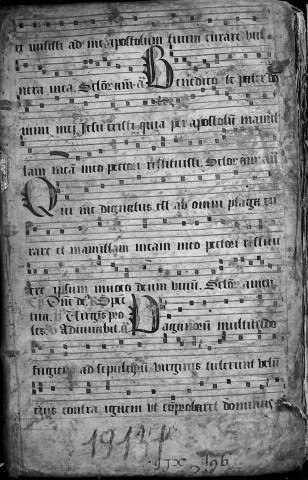 et misisti ad me apostolum tuum curare vul
nera mea. Seculor amen. a Benedico te pater do
mini mei Jesu cristi quia per apostolum mamil
lam meam meo pectori restituisti. Seculor am an
Qui me dignatus est ab omni plaga cu
rare et mamillam meam meo pectori restitu
ere ipsum invoco deum vivum. Seculor amen
tua. Virgis pro
les. Adiuvabit. Paganorum multitudo
fugiens ad sepulcrum virginis tulerunt velum
eius contra ignem ut comprobaret dominus
1913
196